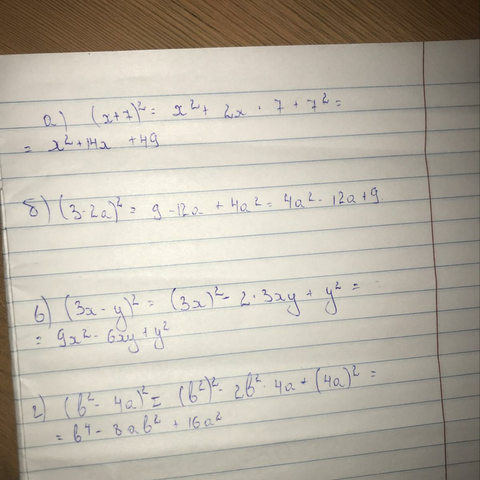 а) (x+7)² = x² + 2x · 7 + 7² =
= x² + 14x + 49
б) (3-2a)² = 9 - 12a + 4a² = 4a² - 12a + 9
в) (3x - y)² = (3x)² - 2 · 3xy + y² =
= 9x² - 6xy + y²
г) (b² - 4a)² = (b²)² - 2b² · 4a + (4a)² =
= b⁴ - 8ab² + 16a²